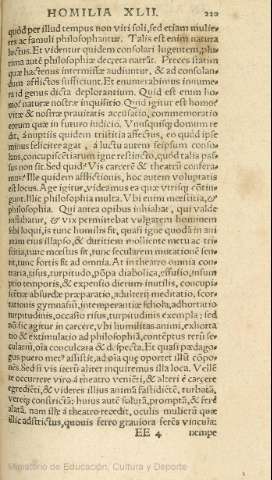 HOMILIA XLII. 220
quòd per illud tempus non viri soli, sed etiam mulieres
ac famuli philosophantur. Talis est enim natura
luctus. Et videntur quidem consolari lugentem, plurima
autē philosophiæ decreta narrāt. Preces statim
quæ hactenus intermissæ audiuntur, & ad consolandum
afflictos sufficiunt. Et enumerabimus
id genus dicta deplorantium. Quid est enim homo?
naturæ nostræ inquisitio. Quid igitur est homo?
vitæ & nostræ prauitatis accusatio, commemoratio
eorum quæ in futuro iudicio. Vnusquisq; domum redit,
à nuptiis quidem tristitia affectus, eo quòd ipse
minus feliciter agat, à luctu autem seipsum consolans,
concupiscentiarum igne restincto, quòd talia passus
non sit. Sed quid? Vis carcerē & theatrū conferamus?
Ille quidem afflictionis, hoc autem voluptatis
est locus. Age igitur, videamus ea quæ vtrisq; cōtingunt.
Illic philosophia multa. Vbi enim mœstitia, &
philosophia. Qui antea opibus inhiabat, qui valde
inflabatur, & vix permittebat vulgarem hominem
sibi loqui, is tunc humilis fit, quasi igne quodā in animum
eius illapso, & duritiem molliente metu ac tristitia,
tunc mœstus fit, tunc secularem mutationē sentit,
tunc fortis fit ad omnia. At in theatro omnia contraria,
risus, turpitudo, pōpa diabolica, effusio, insumptio
temporis, & expensio dierum inutilis, concupiscentiæ
absurdæ præparatio, adulterij meditatio, scortationis
gymnasiū, intemperantiæ schola, adhortatio
turpitudinis, occasio risus, turpitudinis exempla: sed
nō sic agitur in carcere, vbi humilitas animi, exhortatio
& extimulatio ad philosophiā, contēptus rerū secularium,
oīa conculcata & despecta. Et quasi pædagogus
puero metus assistit, ad oīa quę oportet illū cōponēs.
Sed si vis iterū aliter inquiremus illa loca. Vellē
te occurrere viro à theatro veniēti, & alteri è carcere
egrediēti, & videres illius animā fastidiētē, turbatā,
verēq; constrictā: huius autē solutā, promptā, & seruē
alatā, nam ille à theatro recedit, oculis mulierū quæ
illic adstrictus, quouis ferro grauiora ferēs vincula:
EE 4 nempe
Ministerio de Educación, Cultura y Deporte